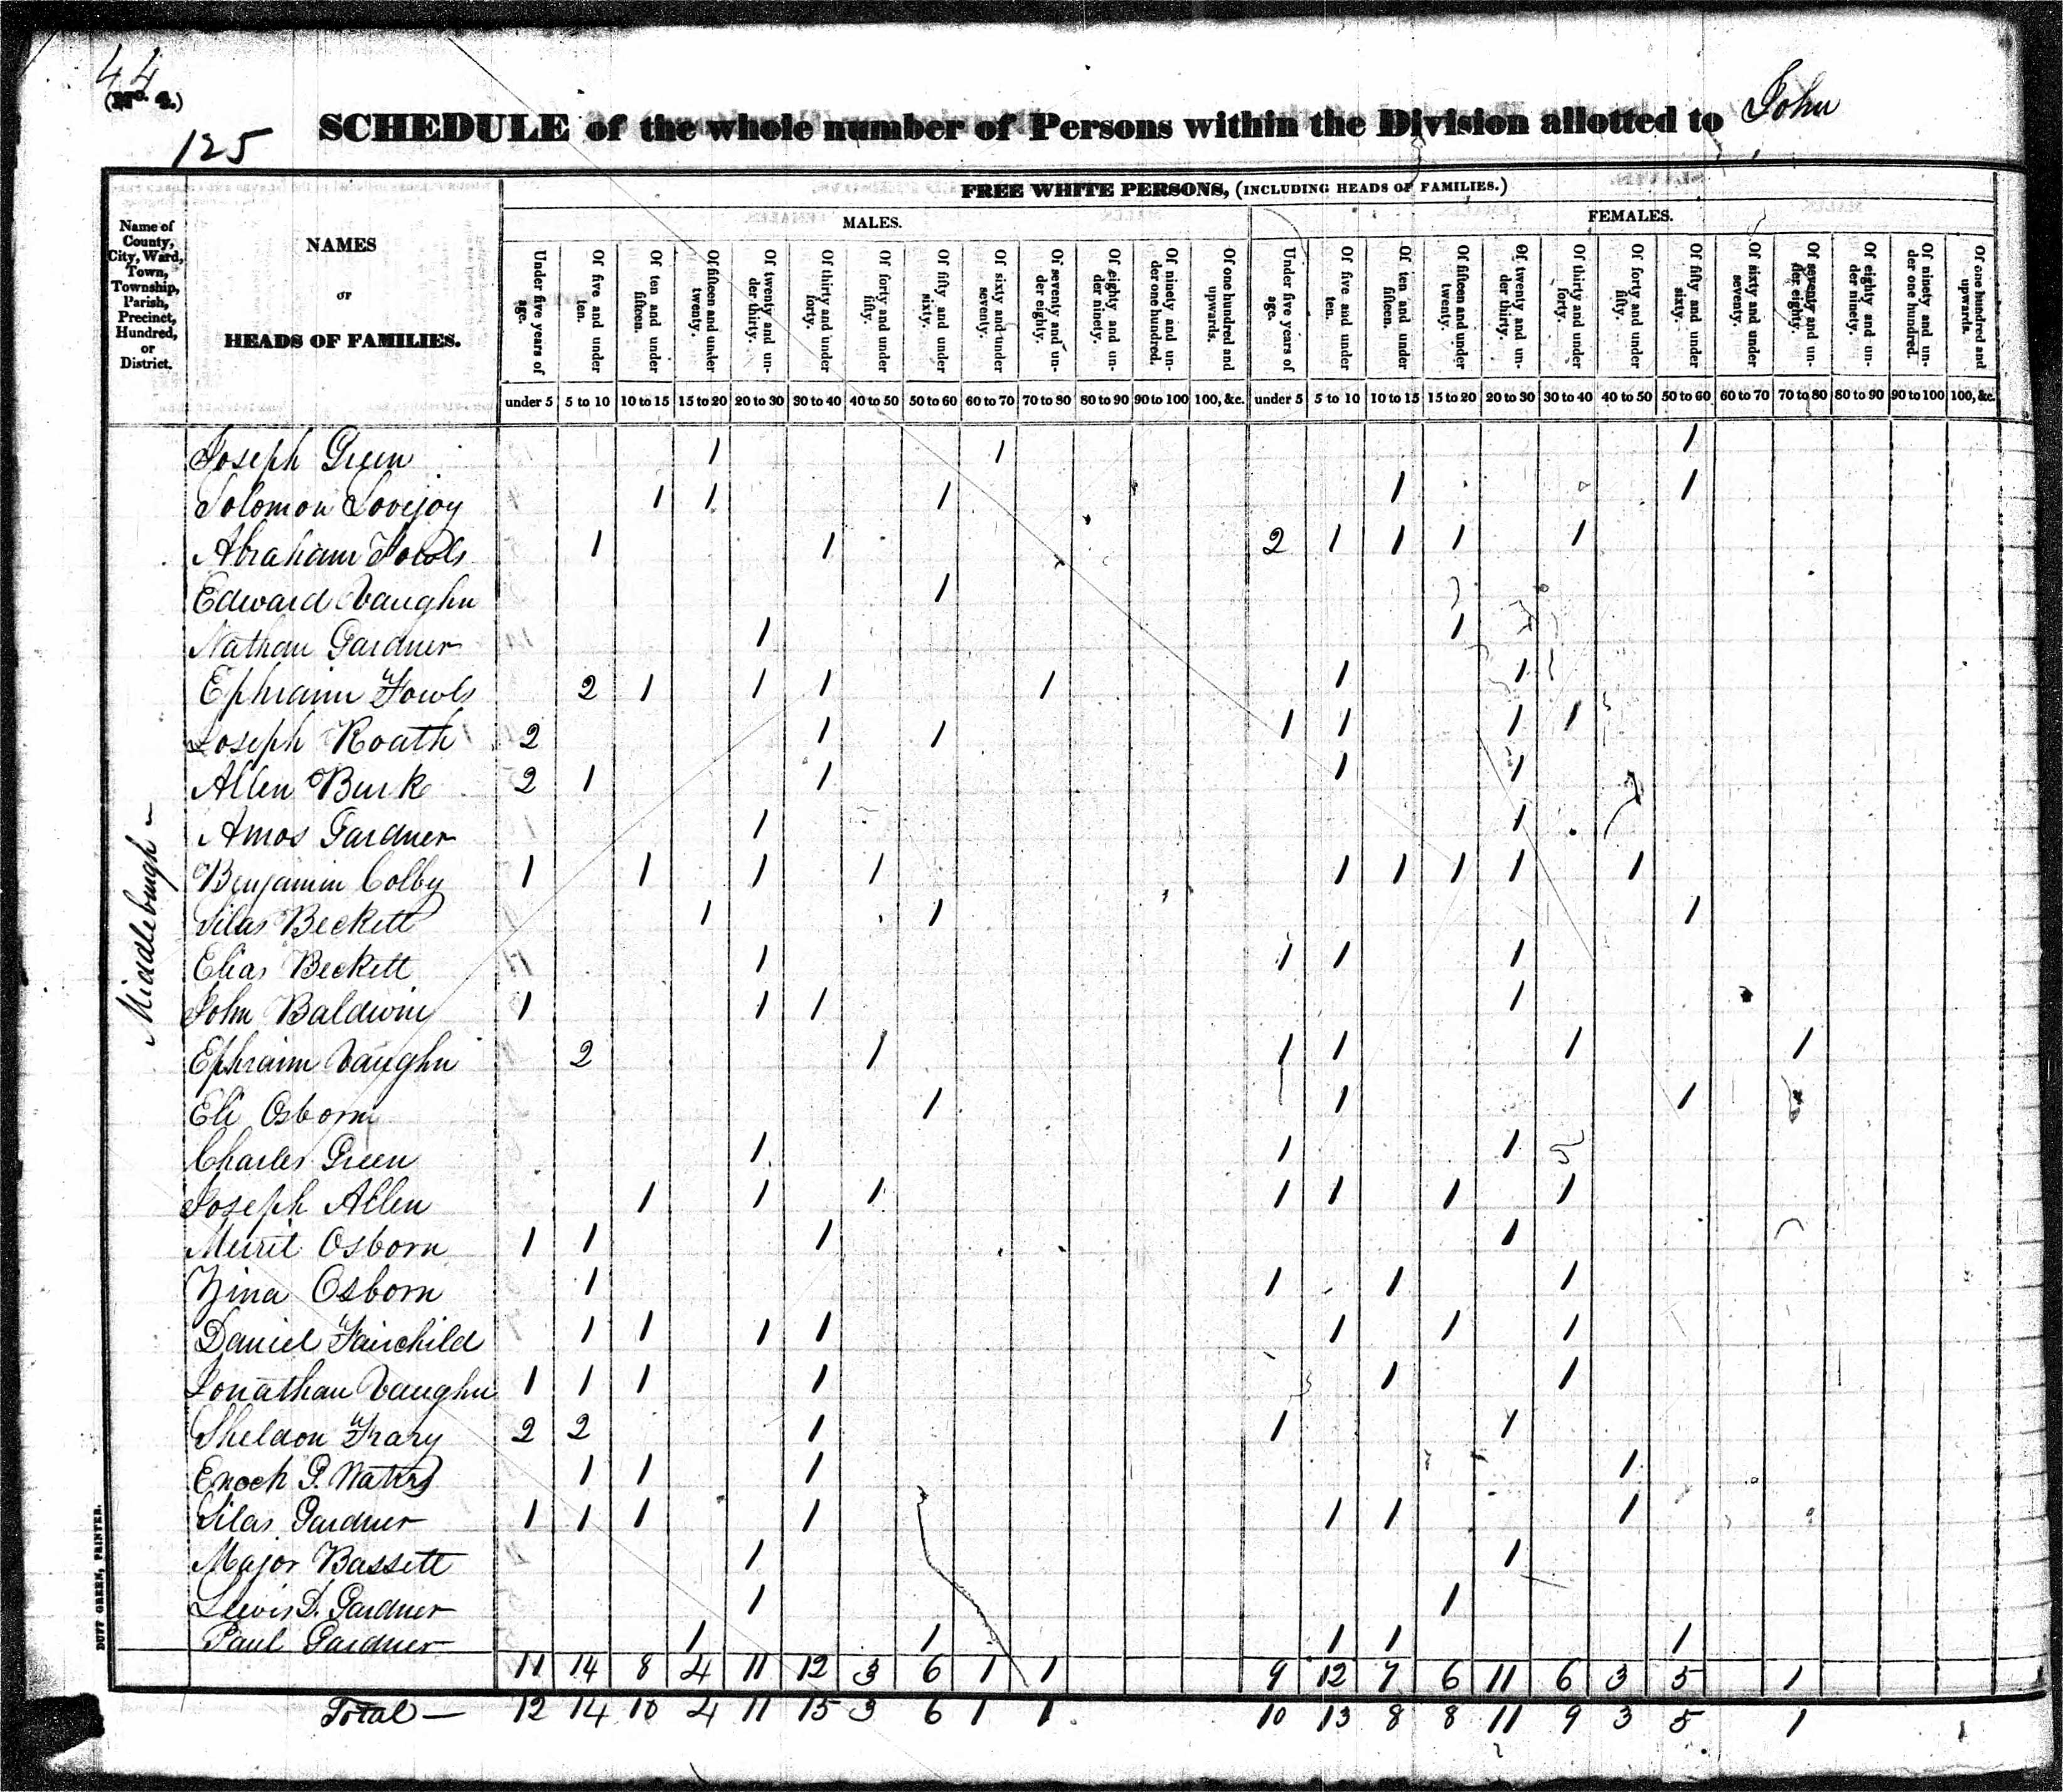 44
(No. 4.)
125
SCHEDULE of the whole number of Persons within the Division allotted to John
FREE WHITE PERSONS, (INCLUDING HEADS OF FAMILIES.)
MALES. FEMALES.
Name of County, City, Ward, Town, Township, Parish, Precinct, Hundred, or District.
NAMES
OF
HEADS OF FAMILIES.
Under five years of age. Of five and under ten. Of ten and under fifteen. Of fifteen and under twenty. Of twenty and under thirty. Of thirty and under forty. Of forty and under fifty. Of fifty and under sixty. Of sixty and under seventy. Of seventy and under eighty. Of eighty and under ninety. Of ninety and under one hundred. Of one hundred and upwards. Under five years of age. Of five and under ten. Of ten and under fifteen. Of fifteen and under twenty. Of twenty and under thirty. Of thirty and under forty. Of forty and under fifty. Of fifty and under sixty. Of sixty and under seventy. Of seventy and under eighty. Of eighty and under ninety. Of ninety and under one hundred. Of one hundred and upwards.
under 5 5 to 10 10 to 15 15 to 20 20 to 30 30 to 40 40 to 50 50 to 60 60 to 70 70 to 80 80 to 90 90 to 100 100, &c. under 5 5 to 10 10 to 15 15 to 20 20 to 30 30 to 40 40 to 50 50 to 60 60 to 70 70 to 80 80 to 90 90 to 100 100, &c.
Middleburgh
Joseph Green 1 1 1
Solomon Lovejoy 1 1 1 1 1
Abraham Fowls 1 1 2 1 1 1 1
Edward Vaughn 1
Nathan Gardner 1 1
Ephraim Fowls 2 1 1 1 1 1 1
Joseph Roath 2 1 1 1 1 1 1
Allen Burk 2 1 1 1 1
Amos Gardner 1 1
Benjamin Colby 1 1 1 1 1 1 1 1 1
Silas Beckett 1 1 1
Elias Beckett 1 1 1 1
John Baldwin 1 1 1 1
Ephraim Vaughn 2 1 1 1 1 1
Eli Osborn 1 1 1
Charles Green 1 1 1
Joseph Allen 1 1 1 1 1 1 1
Merrit Osborn 1 1 1 1
Zina Osborn 1 1 1 1
Daniel Fairchild 1 1 1 1 1 1 1
Jonathan Vaughn 1 1 1 1 1 1
Sheldon Frary 2 2 1 1 1
Enoch P. Waters 1 1 1 1
Silas Gardner 1 1 1 1 1 1 1
Major Bassett 1 1
Lewis D. Gardner 1 1
Paul Gardner 1 1 1 1 1
11 14 8 4 11 12 3 6 1 1 9 12 7 6 11 6 3 5 1
Total — 12 14 10 4 11 15 3 6 1 1 10 13 8 8 11 9 3 5 1 1
DUFF GREEN, PRINTER.